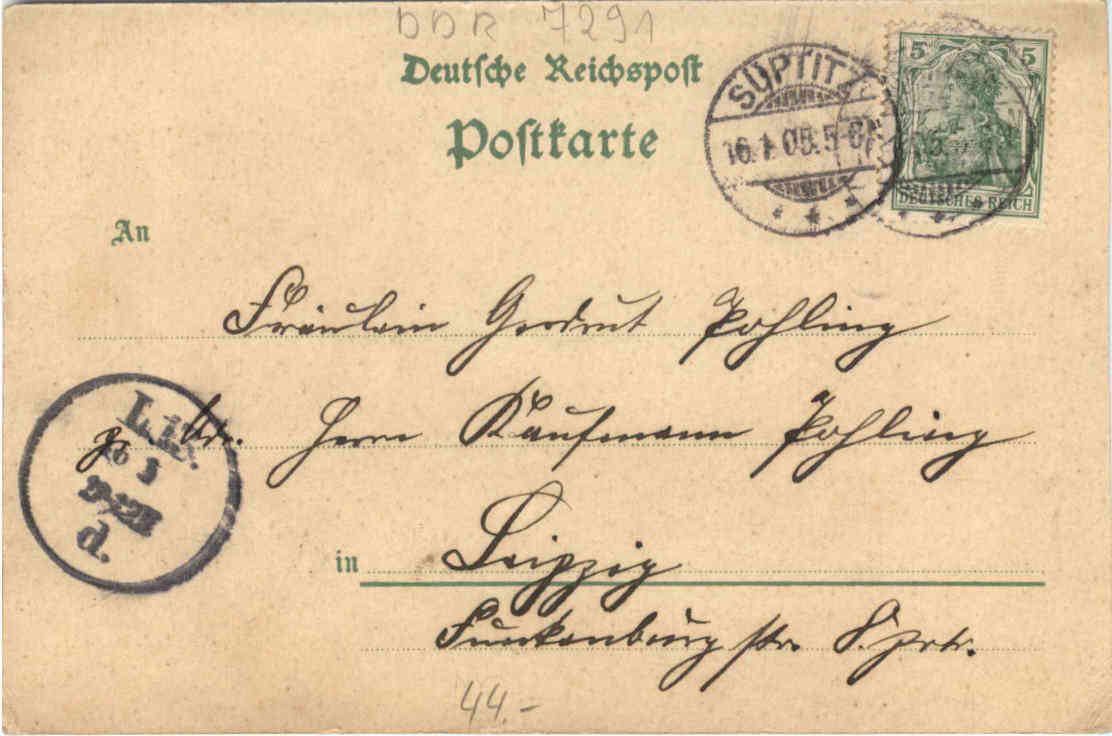 DDR 7291
Deutsche Reichspost
Postkarte
SÜPTITZ
16.1.05.5-6N.
5 5
DEUTSCHES REICH
An
Fräulein Gerdrut Pohling
Herrn Kaufmann Pohling
in Leipzig
Funkenburgstr. 8. prt.
44.-
d.